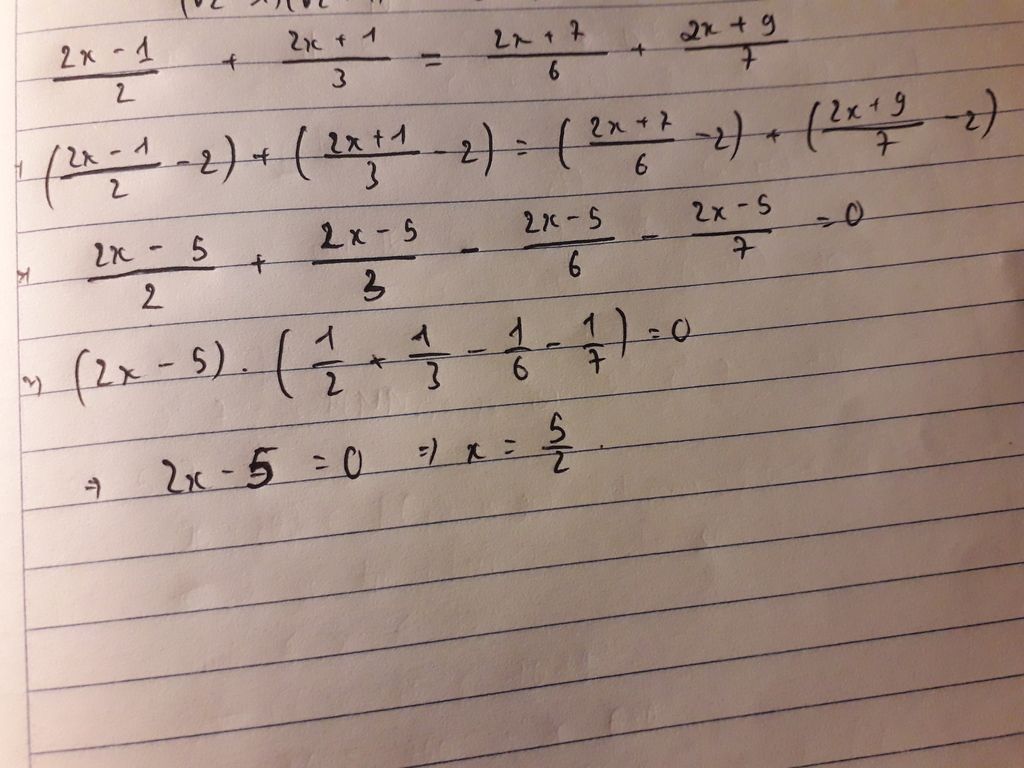 (2x - 1)/2 + (2x + 1)/3 = (2x + 7)/6 + (2x + 9)/7
((2x - 1)/2 - 2) + ((2x + 1)/3 - 2) = ((2x + 7)/6 - 2) + ((2x + 9)/7 - 2)
(2x - 5)/2 + (2x - 5)/3 - (2x - 5)/6 - (2x - 5)/7 = 0
(2x - 5) . (1/2 + 1/3 - 1/6 - 1/7) = 0
⇒ 2x - 5 = 0 ⇒ x = 5/2 .